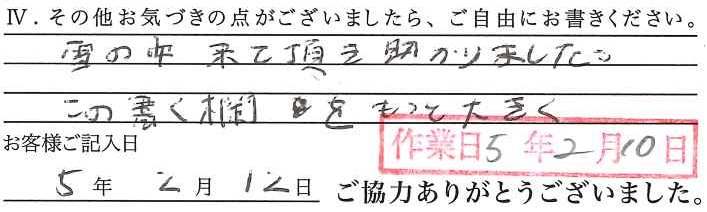 Ⅳ．その他お気づきの点がございましたら、ご自由にお書きください。
雪の中来て頂き助かりました。
この書く欄をもっと大きく
お客様ご記入日
作業日5年2月10日
5年 2月 12日 ご協力ありがとうございました。